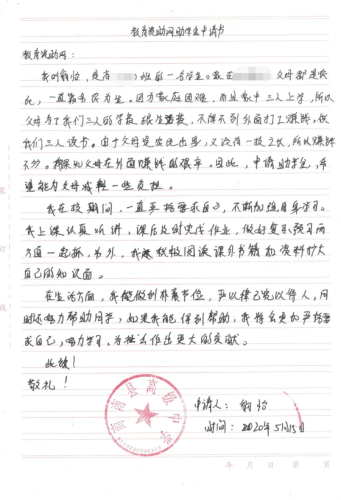 教育资助网助学金申请书
教育资助网:
我叫翁怡,是有 班的一名学生。家在 父母都是农
民,一直靠务农为生。因为家庭困难,而且家中三人上学,所以
父母为了我们三人的学费、生活费,不得不到外面打工赚钱,供
我们三人读书。由于父母是农民出身,又没有一技之长,所以赚钱
不多。深知父母在外面赚钱的艰辛。因此,申请助学金,希
望能为父母减轻一些负担。
我在校期间,一直严格要求自己,不断加强自身学习。
我上课认真听讲,课后及时完成作业,做好复习预习两
方面一起抓,另外,我积极阅读课外书籍和资料扩大
自己的知识面。
在生活方面,我能做到朴素节俭,严以律己宽以待人,同
时还努力帮助同学,如果我能得到帮助,我将会更加严格要
求自己,努力学习,为社会作出更大的贡献。
此致!
敬礼!
申请人: 翁怡
时间: 2020年5月15日
县高级中学
年 月 日 第 页